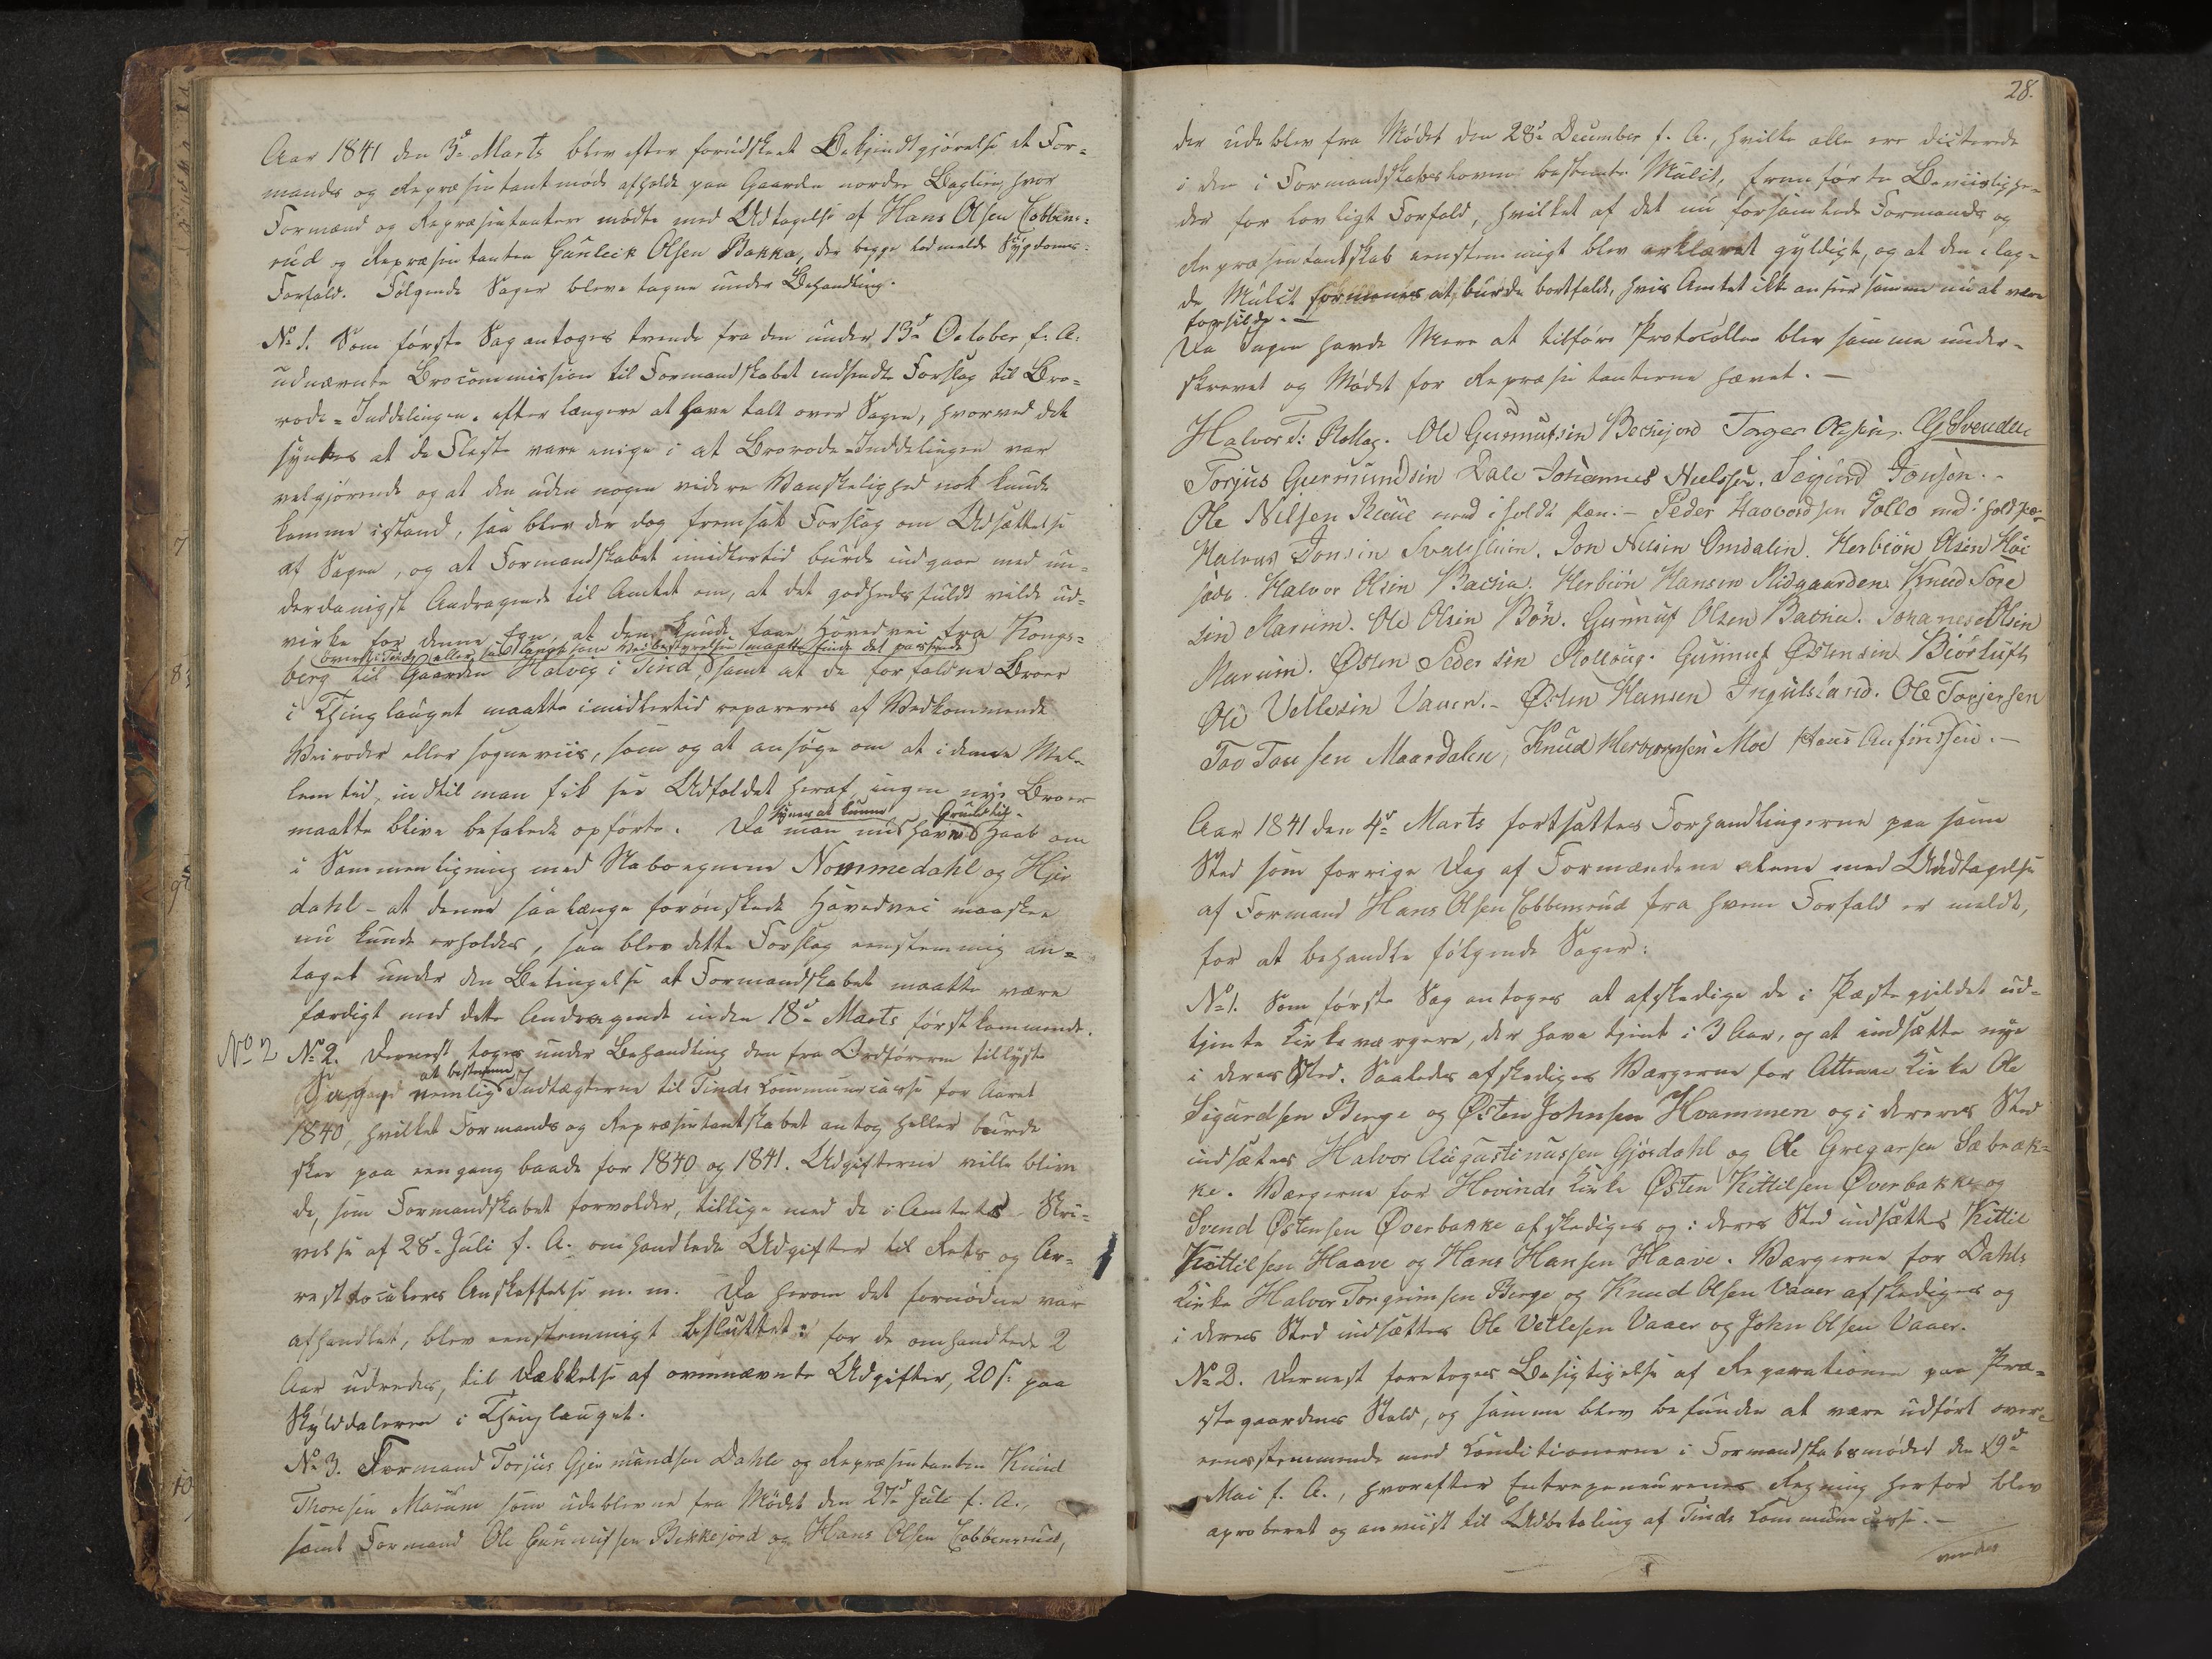 Aar 1841 den 3die Marts blev efter forudskeet Bekjendtgjørelse et For-
mands og Repræsentantmøde afholdt paa Gaarden nordre Bagliem, hvor
Formænd og Repræsentanter mødte med Udtagelse af Hans Olsen Cobbens-
rud og Repræsentanten Gunleik Olsen Bakka, der begge lod melde Sygdoms-
Forfald. Følgende Sager bleve tagne under Behandling.
No 1. Som første Sag antoges tvende fra den under 13de October f. A.
udnævnte Brocommission til Formandskabet indsendte Forslag til Bro-
rode-Inddelingen. efter længere at have talt over Sagen, hvorved det
syntes at de Fleste vare enige i at Brorode-Inddelingen var
velgjørende og at den uden nogen videre Vanskelighed nok kunde
komme istand, saa blev der dog fremsat Forslag om Udsættelse
af Sagen, og at Formandskabet imidlertid burde indgaae med un-
derdanigst Andragende til Amtet om, at det godhedsfuldt vilde ud-
virke for denne Egn, at den kunde faae Hovedvei fra Kongs-
(øverst i Tinds eller saa langt som Veibestyrelsen maatte finde det passende)
berg til Gaarden Halvig i Tind, samt at de forfaldne Broer
i Thinglauget maatte imidlertid repareres af Vedkommende
Veiroder eller sogneviis, som og at ansøge om at i denne Mel-
lemtid, indtil man fik see Udfaldet heraf, ingen nye Broer
maatte blive befalede opførte. Da man nu synes at kunne have Grundet Haab om
i Sammenligning med Naboegnene Nommedahl og Hjer
dahl - at denne saalænge forønskede Hovedvei maaskee
nu kunde erholdes, saa blev dette Forslag eenstemmig an-
taget under den Betingelse at Formandskabet maatte være
færdigt med dette Andragende inden 18de Marts førstkommende.
No 2 No 2. Dernest toges under Behandling den fra Ordføreren tillyste
Sag nemlig at bestemme Indtægterne til Tinds Communecasse for Aaret
1840, hvilket Formands og Repræsentantskabet antog heller burde
skee paa eengang baade for 1840 og 1841. Udgifterne ville blive
de, som Formandskabet forvolder, tillige med de i Amtets Skri-
velse af 28de Juli f. A. omhandlede Udgifter til Rets og Ar-
restlocalers Anskaffelse m. m. Da herom det fornødne var
afhandlet, blev eenstemmigt besluttet: for de omhandlede 2
Aar udredes, til Dækkelse af ovennævnte Udgifter, 20 s. paa
Skylddaleren i Thinglauget.
No 3. Formand Torjus Gjermundsen Dahle og Repræsentanten Knud
Thoresen Marum som udebleve fra Mødet den 27de Juli f. A.,
samt Formand Ole Gunnulfsen Bekkejord og Hans Olsen Cobbensrud,
28.
der udeblev fra Mødet den 28de December f. A., hvilke alle ere dicterede
i den i Formandskabsloven bestemte Mulct, fremførte Beviislighe-
der for lovligt Forfald, hvilket af det nu forsamlede Formands og
Repræsentantskab eenstemmigt blev erklæret gyldigt, og at den ilag-
de Mulct formenes at burde bortfalde, hvis Amtet ikke anseer samme nu at være
forsilde. -
Da Ingen havde Mere at tilføre Protocollen blev samme under-
skrevet og Mødet for Repræsentanterne hævet. -
Halvor T: Rollag. Ole Gunnulsin Beckejord Torger Olsen, G Svendsen
Torjus Germundsin Dale Johannes Nielssen. Sigurd Jonsen. -
Ole Nilsen med iholdt Pæn. - Peder Haavordsen Gollo med ihold Pæn
Halvor Jonsin. Jon Nilsin Omdalin. Herbiøn Olsen Høi
Halvor Olsin Bacha. Herbiøn Hansen Midgaarden. Knud Tore
sin Marum. Ole Olsin Bøn. Gunnuf Olsen Bacha. Johanes Olsin
Marum. Østen Pedersin Rollaug. Gunnuf Østensin Biørtuft
Ole Vetlesin Vaaer. - Østen Hansen Ingulsland. Ole Torjersen
Tov Tovsen Maardalen, Knud Herbjørnsen Moe Hans Anfinssen. -
Aar 1841 den 4de Marts fortsattes Forhandlingerne paa samme
Sted som forrige Dag af Formændene alene med Undtagelse
af Formand Hans Olsen Cobbensrud fra hvem Forfald er meldt,
for at behandle følgende Sager:
No 1. Som første Sag antoges at afskedige de i Præstegjeldet ud-
tjente Kirkeværgere, der have tjent i 3 Aar, og at indsætte nye
i deres Sted. Saaledes afskediges Værgerne for Attraae Kirke Ole
Sigurdsen Berge og Østen Johnsen Hvammen og i deres Sted
indsættes Halvor Augustinussen Gjøsdahl og Ole Gregarsen Sæbræk-
ke. Værgerne for Hovinds Kirke Østen Kittilsen Øverbakke og
Svend Østensen Øverbakke afskediges og i deres Sted indsættes Kittil
Kittilsen Haave og Hans Hansen Haave. Værgerne for Dahls
Kirke Halvor Torgrimsen Berge og Knud Olsen Vaaer afskediges og
i deres Sted indsættes Ole Vetlesen Vaaer og John Olsen Vaaer.
No 2. Dernest foretoges Besigtigelse af Reparationen paa Præ-
stegaardens Stald, og samme blev befunden at være udført over-
eensstemmende med Conditionerne i Formandskabsmødet den 19de
Mai f. A., hvorefter Entrepeneurenes Regning herfor blev
aproberet og anviist til Udbetaling af Tinds Communecasse. -
vendes
7
8
9
10